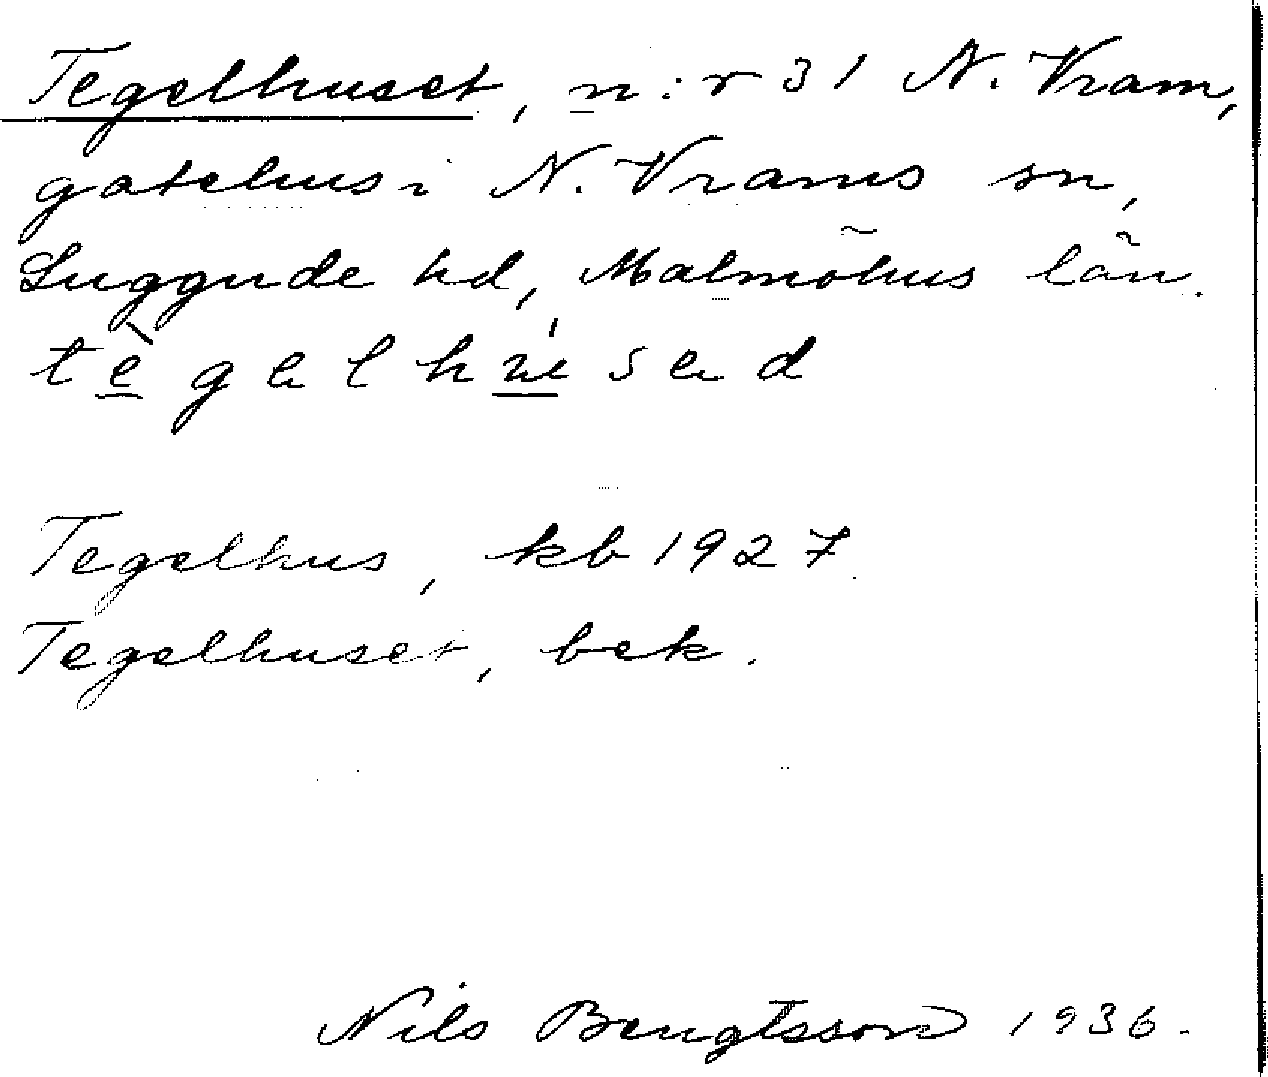 Tegelhuset, n:r 31 N. Vram,
gatehus i N. Vrams sn,
Luggude hd, Malmöhus län.
tègelhúsed
Tegelhus, kb 1927.
Tegelhuset, bek.
Nils Bengtsson 1936.